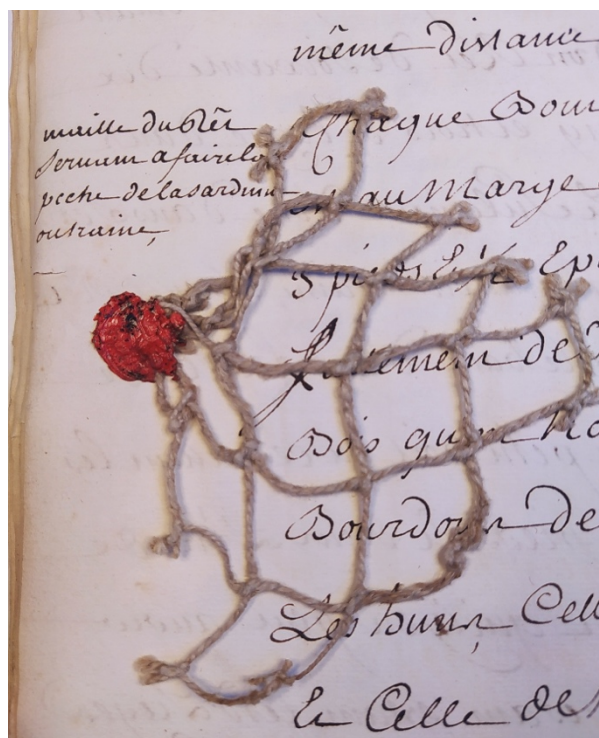 maille du Rêt
servant a faire la
peche de la sardine
ou traine,
même distance
Chaque Bour
au marge
3 pieds Et ½ Ep
de
Bois qu'on
Bourdon de
Les huns Cell
Et Celle de